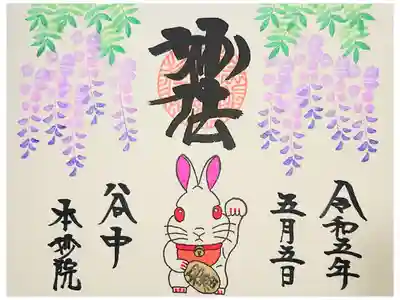 令和五年
五月五日
妙法
谷中
本妙院